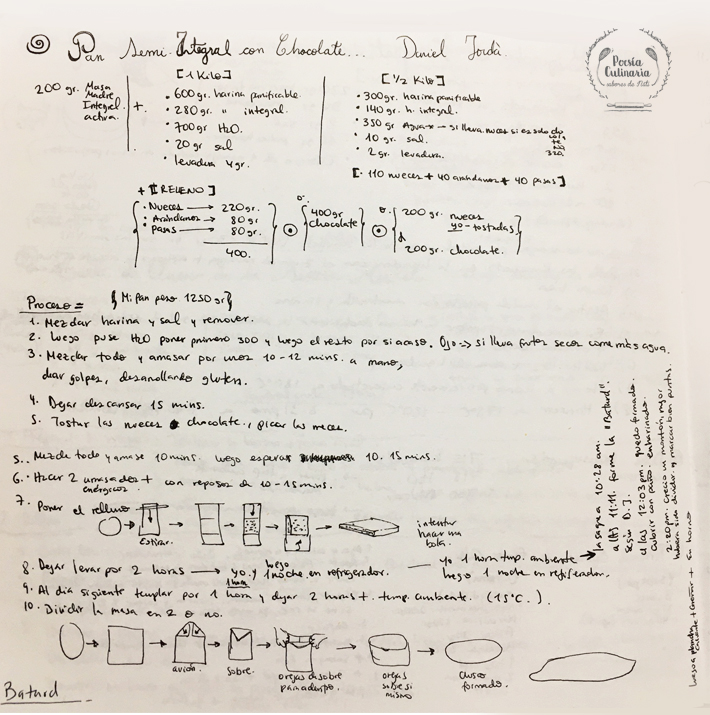 Pan Semi-Integral con Chocolate... Daniel Jordà.
Poesía
Culinaria
sabores de Nati
200 gr. Masa
Madre
Integral
activa.
+
[1 Kilo]
• 600gr. harina panificable.
• 280gr. " integral.
• 700gr H2O.
• 20gr sal
• levadura 4gr.
[1/2 Kilo]
• 300gr. harina panificable
• 140gr. h. integral.
• 350 gr Agua → si lleva nueces si es solo
320.
• 10 gr. sal.
• 2gr. levadura.
[· 110 nueces + 40 arándanos + 40 pasas]
+ [RELLENO]
• Nueces → 220gr.
• Arándanos → 80gr.
• Pasas → 80gr.
400.
o.
400gr
chocolate
o.
200gr. nueces
yo - tostadas
200gr. chocolate.
Proceso = {Mi pan peso 1250gr}
1. Mezclar harina y sal y remover.
2. luego puse H2O poner primero 300 y luego el resto por si acaso. Ojo => si lleva frutos secos come más agua.
3. Mezclar todo y amasar por unos 10-12 mins. a mano,
dar golpes, desarrollando gluten.
4. Dejar descansar 15 mins.
5. Tostar las nueces chocolate, picar las nueces.
5. Mezcle todo y amase 10 mins. luego esperar 10. 15 mins.
6. Hacer 2 amasados + con reposos de 10-15 mins.
energicos
7. Poner el relleno
Estirar.
intentar
hacer una
bola.
8. Dejar levar por 2 horas → yo, y luego 1 noche en refrigerador.
1 hora
yo 1 hora temp. ambiente
luego 1 noche en refrigerador.
9. Al día sigiente templar por 1 hora y dejar 2 horas +. temp. ambiente. (15°C.)
10. Dividir la masa en 2 o no.
la saque a 10:28 am.
a las 11:11. forme la "Batard".
Según D.J.
a las 12:03 pm. quedo formado.
cubrir con paño enharinado.
2:20 pm. Crecio un montón, mejor
hubiera sido dividir y marcar bien puntas.
avión.
sobre.
orejas sobre
orejas
sobre si
mismo
formado.
Batard